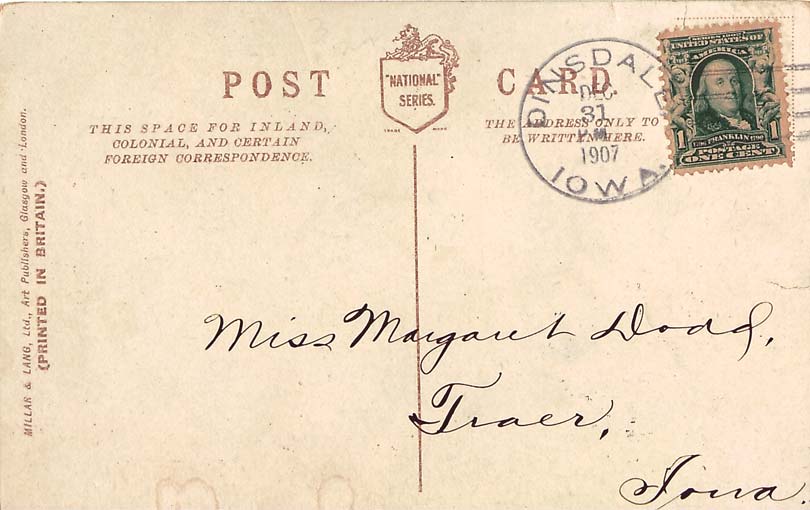 POST CARD
"NATIONAL"
SERIES.
TRADE MARK
THIS SPACE FOR INLAND,
COLONIAL, AND CERTAIN
FOREIGN CORRESPONDENCE.
THE ADDRESS ONLY TO
BE WRITTEN HERE.
DINSDALE
DEC
31
P.M
1907
IOWA.
SERIES 1902
UNITED STATES OF
AMERICA
FRANKLIN
1 1
POSTAGE
ONE CENT
MILLAR & LANG, Ltd., Art Publishers, Glasgow and London.
(PRINTED IN BRITAIN.)
Miss Margaret Dodd,
Traer,
Iowa.